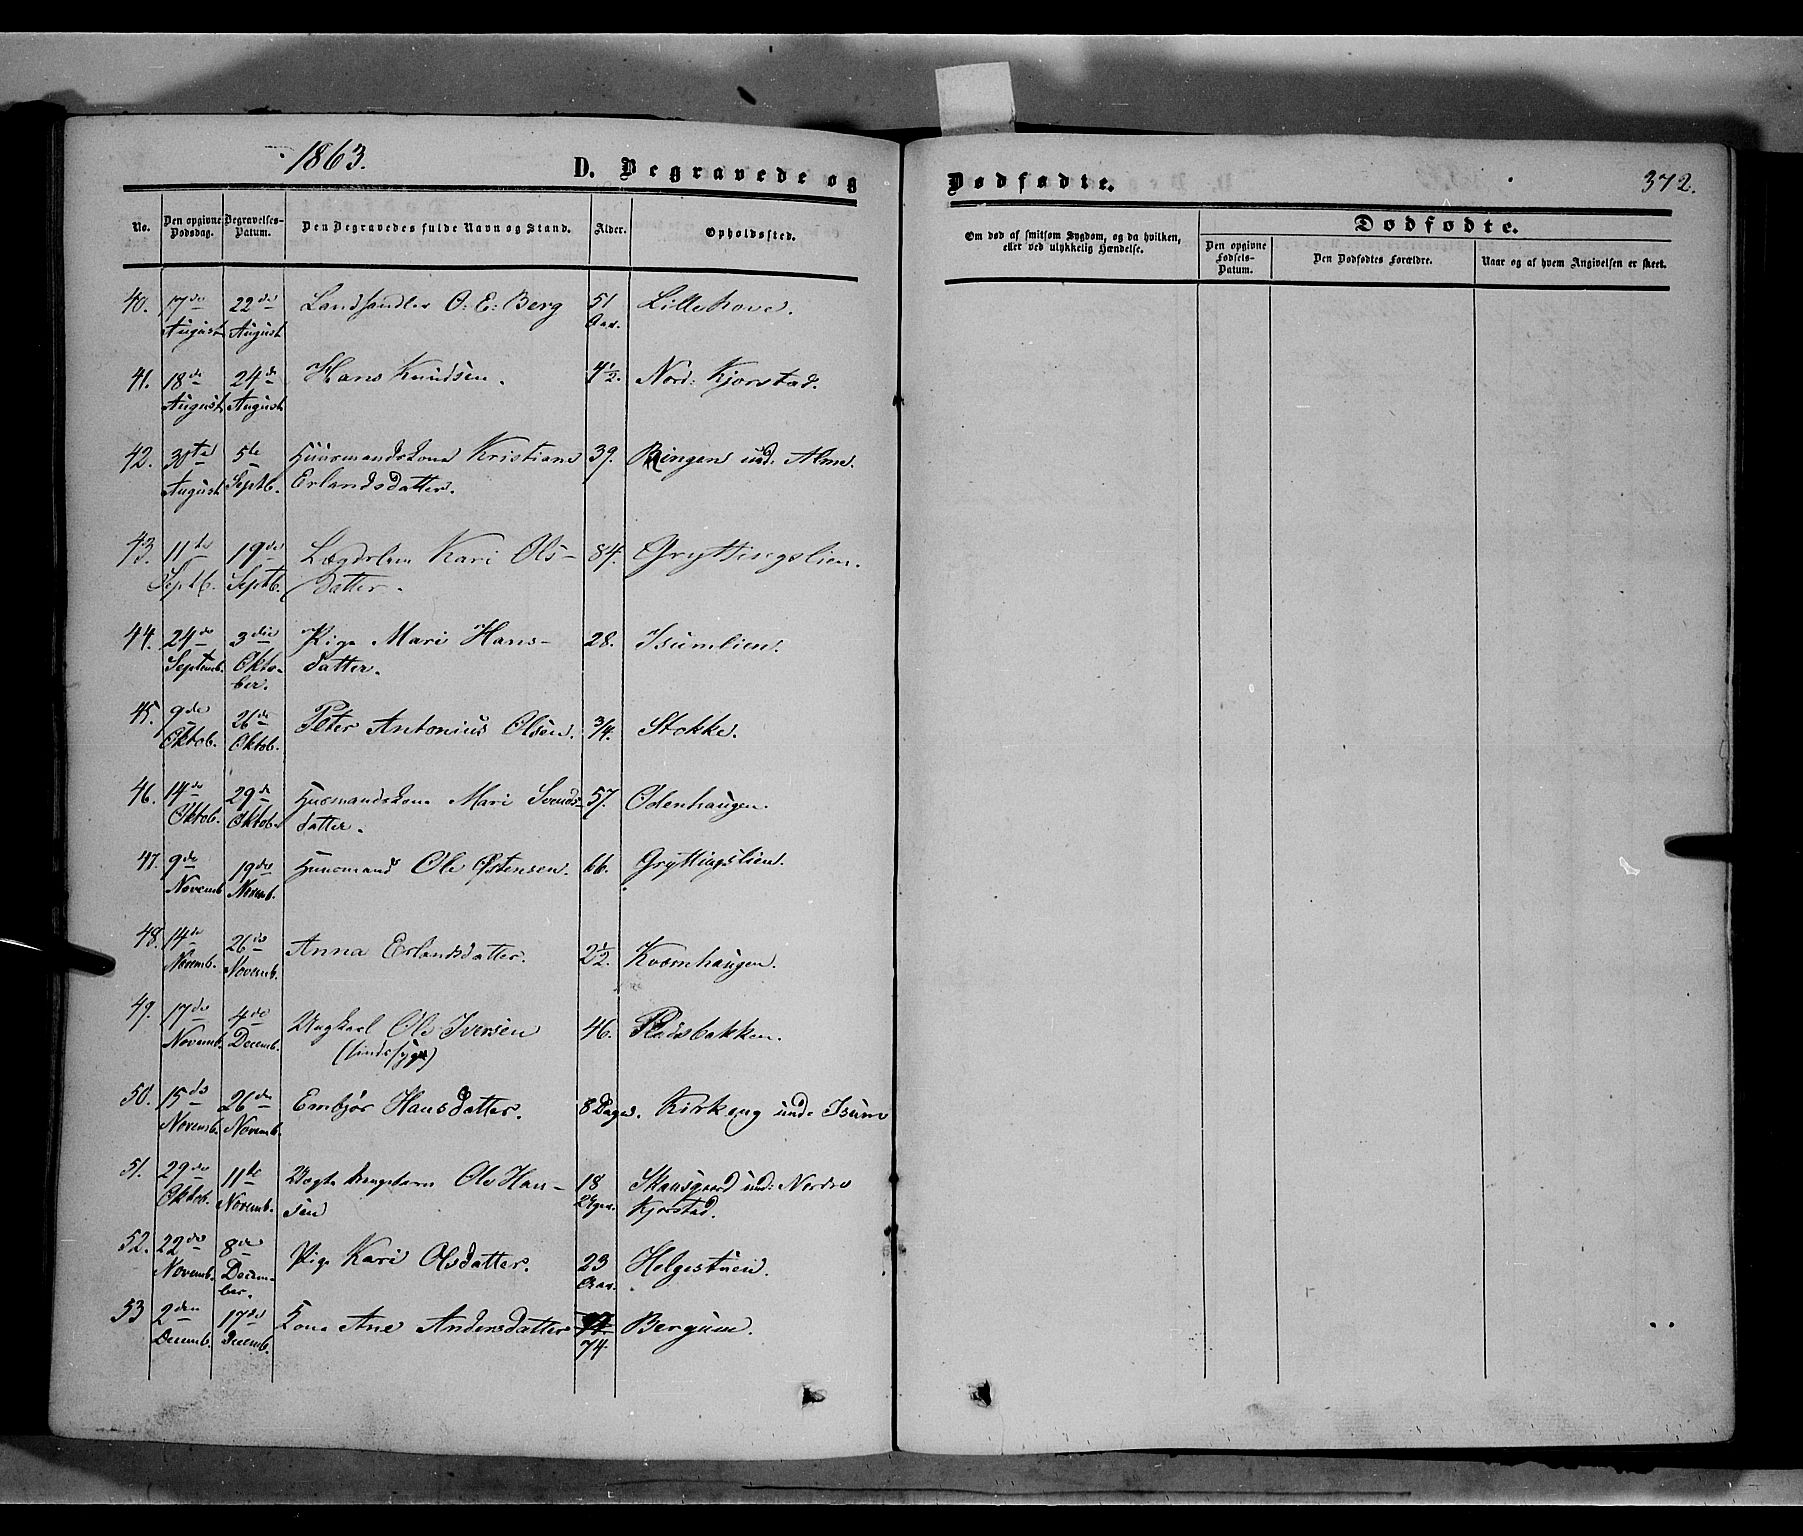 1863.
D. Begravede og
Dødfødte.
372.
No.
Den opgivne Dødsdag.
Begravelses-Datum.
Den Begravedes fulde Navn og Stand.
Alder.
Opholdssted.
Om død af smitsom Sygdom, og da hvilken, eller ved ulykkelig Hændelse.
Dødfødte.
Den opgivne Fødsels-Datum.
Den Dødfødtes Forældre.
Naar og af hvem Angivelsen er skeet.
40. 17de August 22de August Landhandler O: E: Berg 51 Aar. Lillehove.
41. 18de August 24de August Hans Knudsen. 4½. Nord: Kjorstad.
42. 30te August 5te Septb. Huusmandskone Kristiane Erlandsdatter. 39. Ringen und. Alme.
43. 11te Septb. 19de Septb. Lægdslem Kari Ols-
datter. 84. Gryttingslien.
44. 24de Septemb. 3die Oktober. Pige Mari Hans-
datter. 28. Isumlien.
45. 9de Oktob. 26de Oktob. Peter Antonius Olsen. 3/4. Stokke.
46. 14de Oktob. 29de Oktob. Husmandskone Mari Svends-
datter. 57. Odenhaugen.
47. 9de Novemb. 19de Novemb. Huusmand Ole Østensen. 66. Gryttingslien.
48. 14de Novemb. 26de Novemb. Anna Erlandsdatter. 2½. Kvernhaugen.
49. 17de Novemb. 4de Decemb. Ungkarl Ole Iversen
(sindssyg) 46. Pladsbakken.
50. 15de Novemb. 26de Novemb. Embjør Hansdatter. 8 Dage. Kirkeng unde Isum
51. 29de Oktob. 11te Novemb. Ægte Ole Han-
sen 18 Uger. und: Nordre Kjorstad.
52. 22de Novemb. 8de December. Pige Kari Olsdatter. 23 Aar. Helgestuen.
53 2den Decemb. 17de Decemb. Kone Ane Andersdatter 74. Bergum.